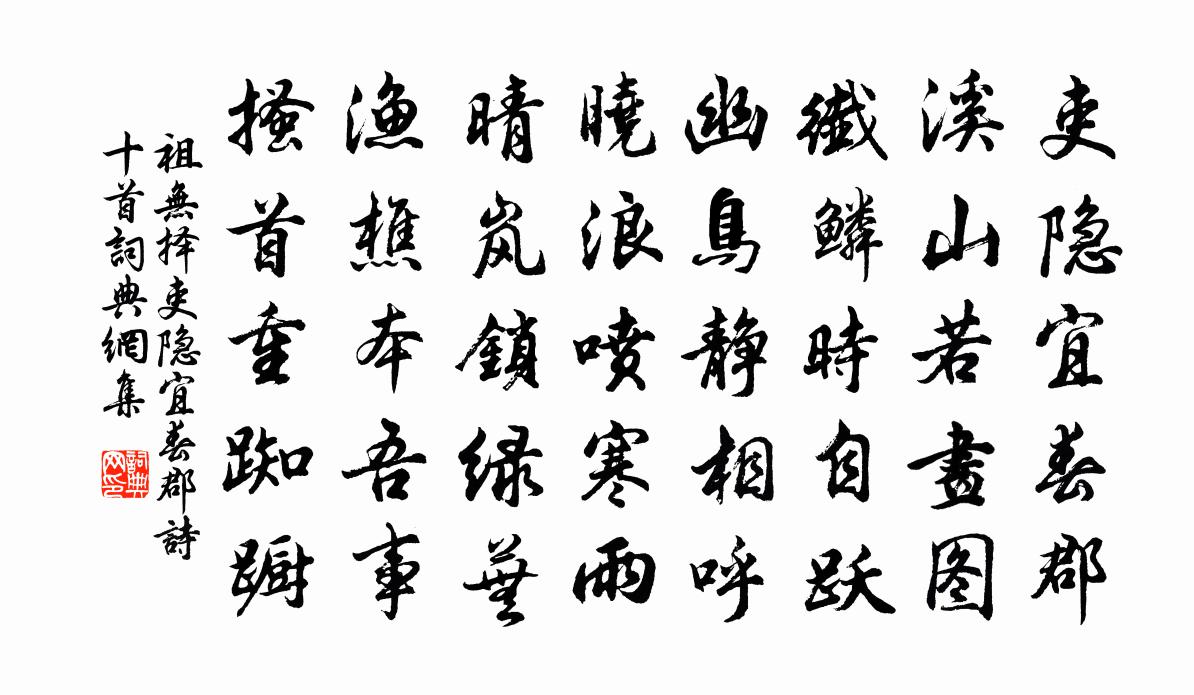 吏隐宜春郡
溪山若畫图
纖鱗時自跃
幽鳥静相呼
曉浪噴寒雨
晴岚鎖绿蕪
漁樵本吾事
搔首重踟蹰
祖無择吏隐宜春郡詩
十首詞典網集
詞典网印